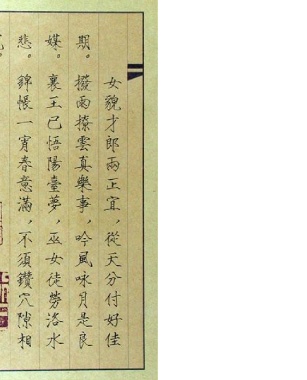 女貌才郎兩正宜，從天分付好佳
期。撥雨撩雲真樂事，吟風咏月是良
媒。襄王已悟陽臺夢，巫女徒勞洛水
悲。錦帳一宵春意滿，不須鑽穴隙相